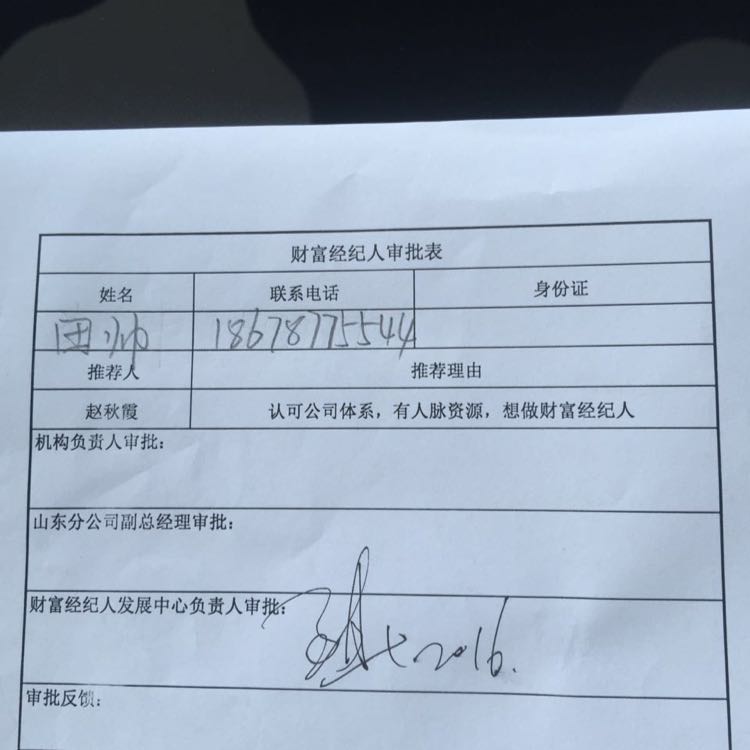 财富经纪人审批表
姓名 联系电话 身份证
田帅 18678775544
推荐人 推荐理由
赵秋霞 认可公司体系，有人脉资源，想做财富经纪人
机构负责人审批：
山东分公司副总经理审批：
财富经纪人发展中心负责人审批：
2016.
审批反馈：